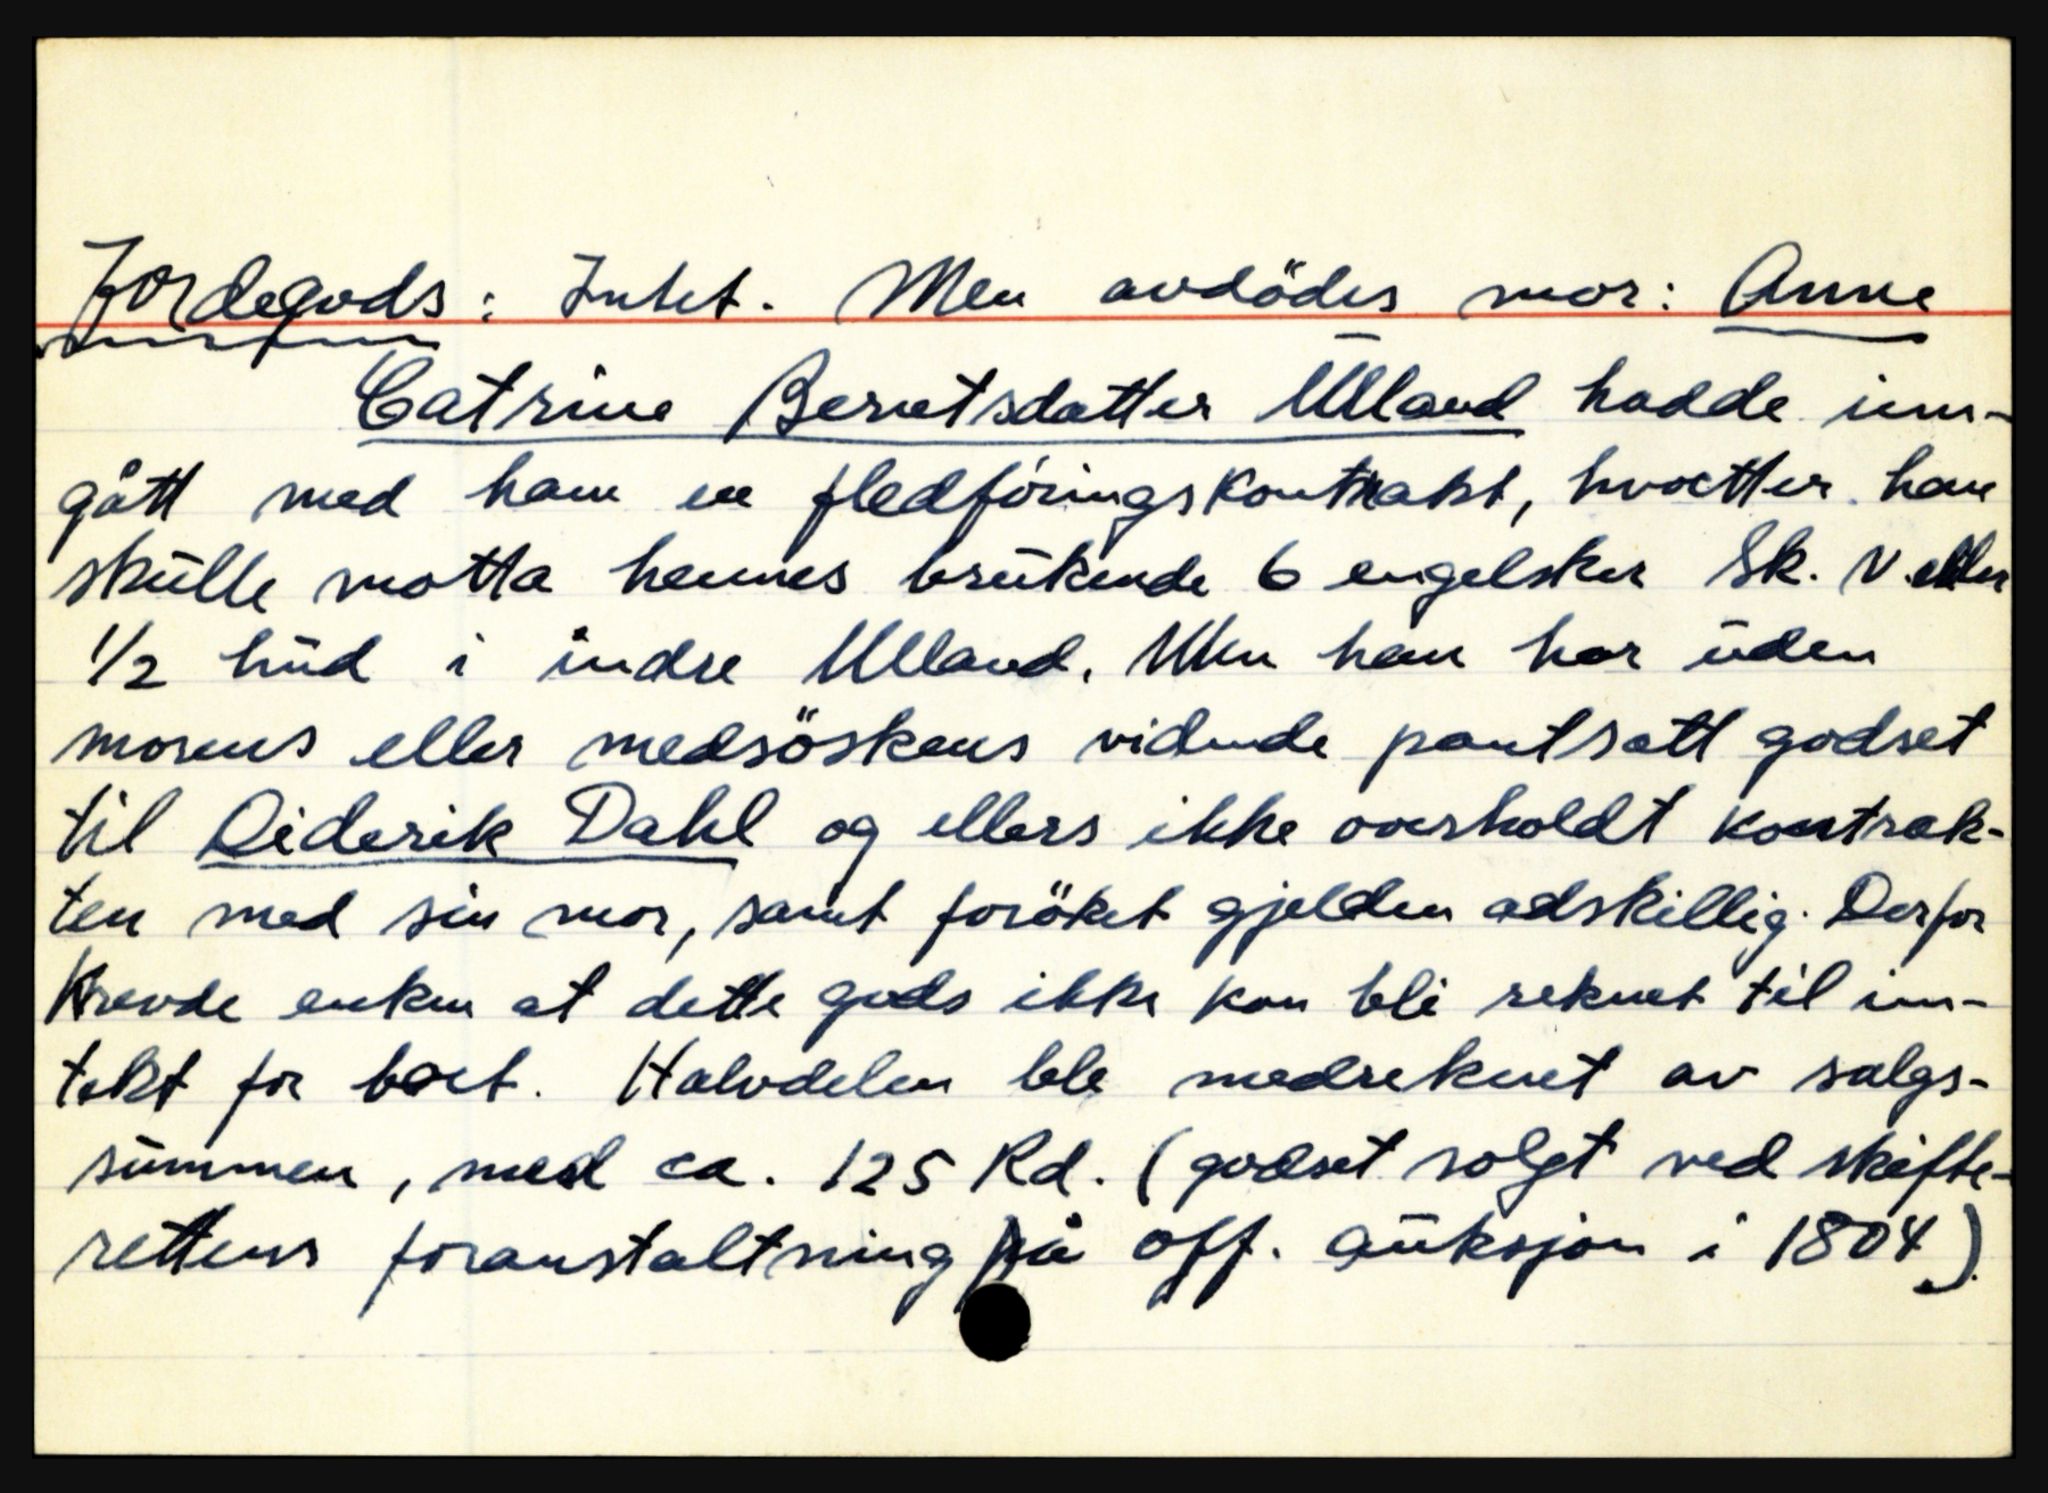 Jordegods: Intet. Men avdödes mor: Anne
Catrine Berntsdatter Ulland hadde inn-
gått med ham en fledføringskontrakt, hvoretter han
skulle motta hennes brukende 6 engelsker Sk. N. eller
1/2 hud i indre Ulland. Men han har uden
morens eller medsöskens vidende pantsatt godset
til Diderik Dahl og ellers ikke overholdt kontrak-
ten med sin mor, samt foröket gjelden adskillig. Derfor
krevde enken at dette gods ikke kan bli reknet til inn-
tekt for boet. Halvdelen ble medreknet av salgs-
summen, med ca. 125 Rd. (godset solgt ved skifte-
rettens foranstaltning på off. auksjon i 1804).